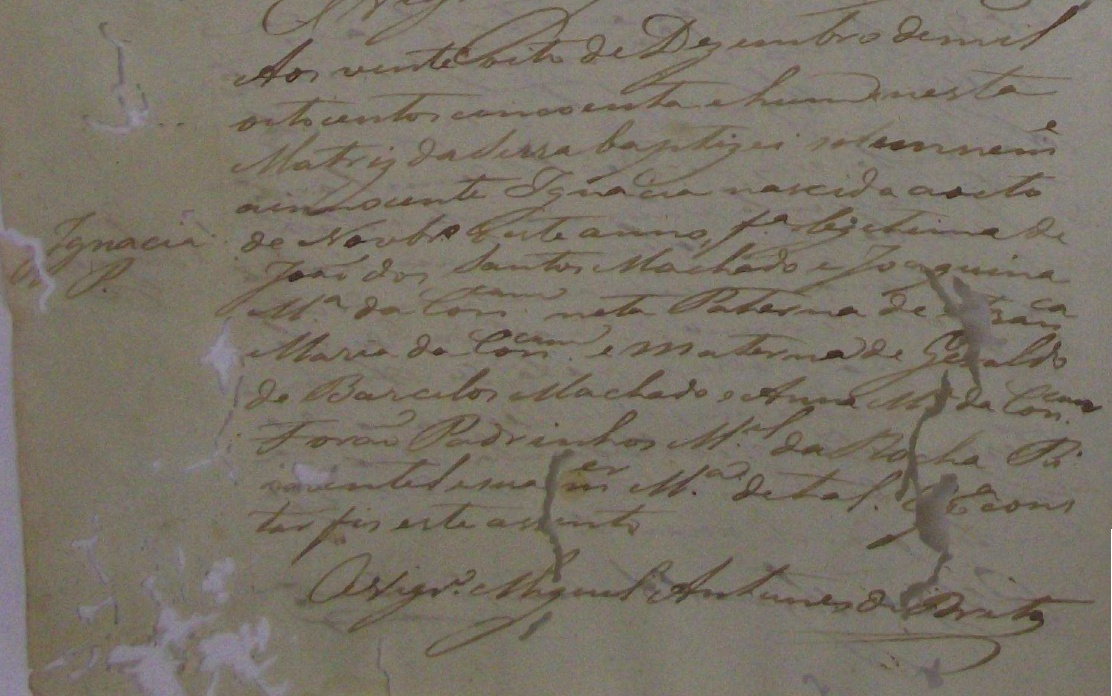 O Vigr.
Aos vinte oito de Dezembro de mil
oitocentos cincoenta e hum nesta
Matriz da Serra baptizei solemneme
a innocente Ignacia nascida a oito
Ignacia
P.
de Novbro deste anno, f.a legitima de
João dos Santos Machado e Joaquina
M.a da Concam neta Paterna de Franca
Maria da Concam e materna de Geraldo
de Barcelos Machado e Anna M.a da Concam
Forão Padrinhos M.el da Rocha Pi
mentel e sua mer M.a de tal. E cons
tar fis este assento
O Vigr.o Miguel Antunes de Brito